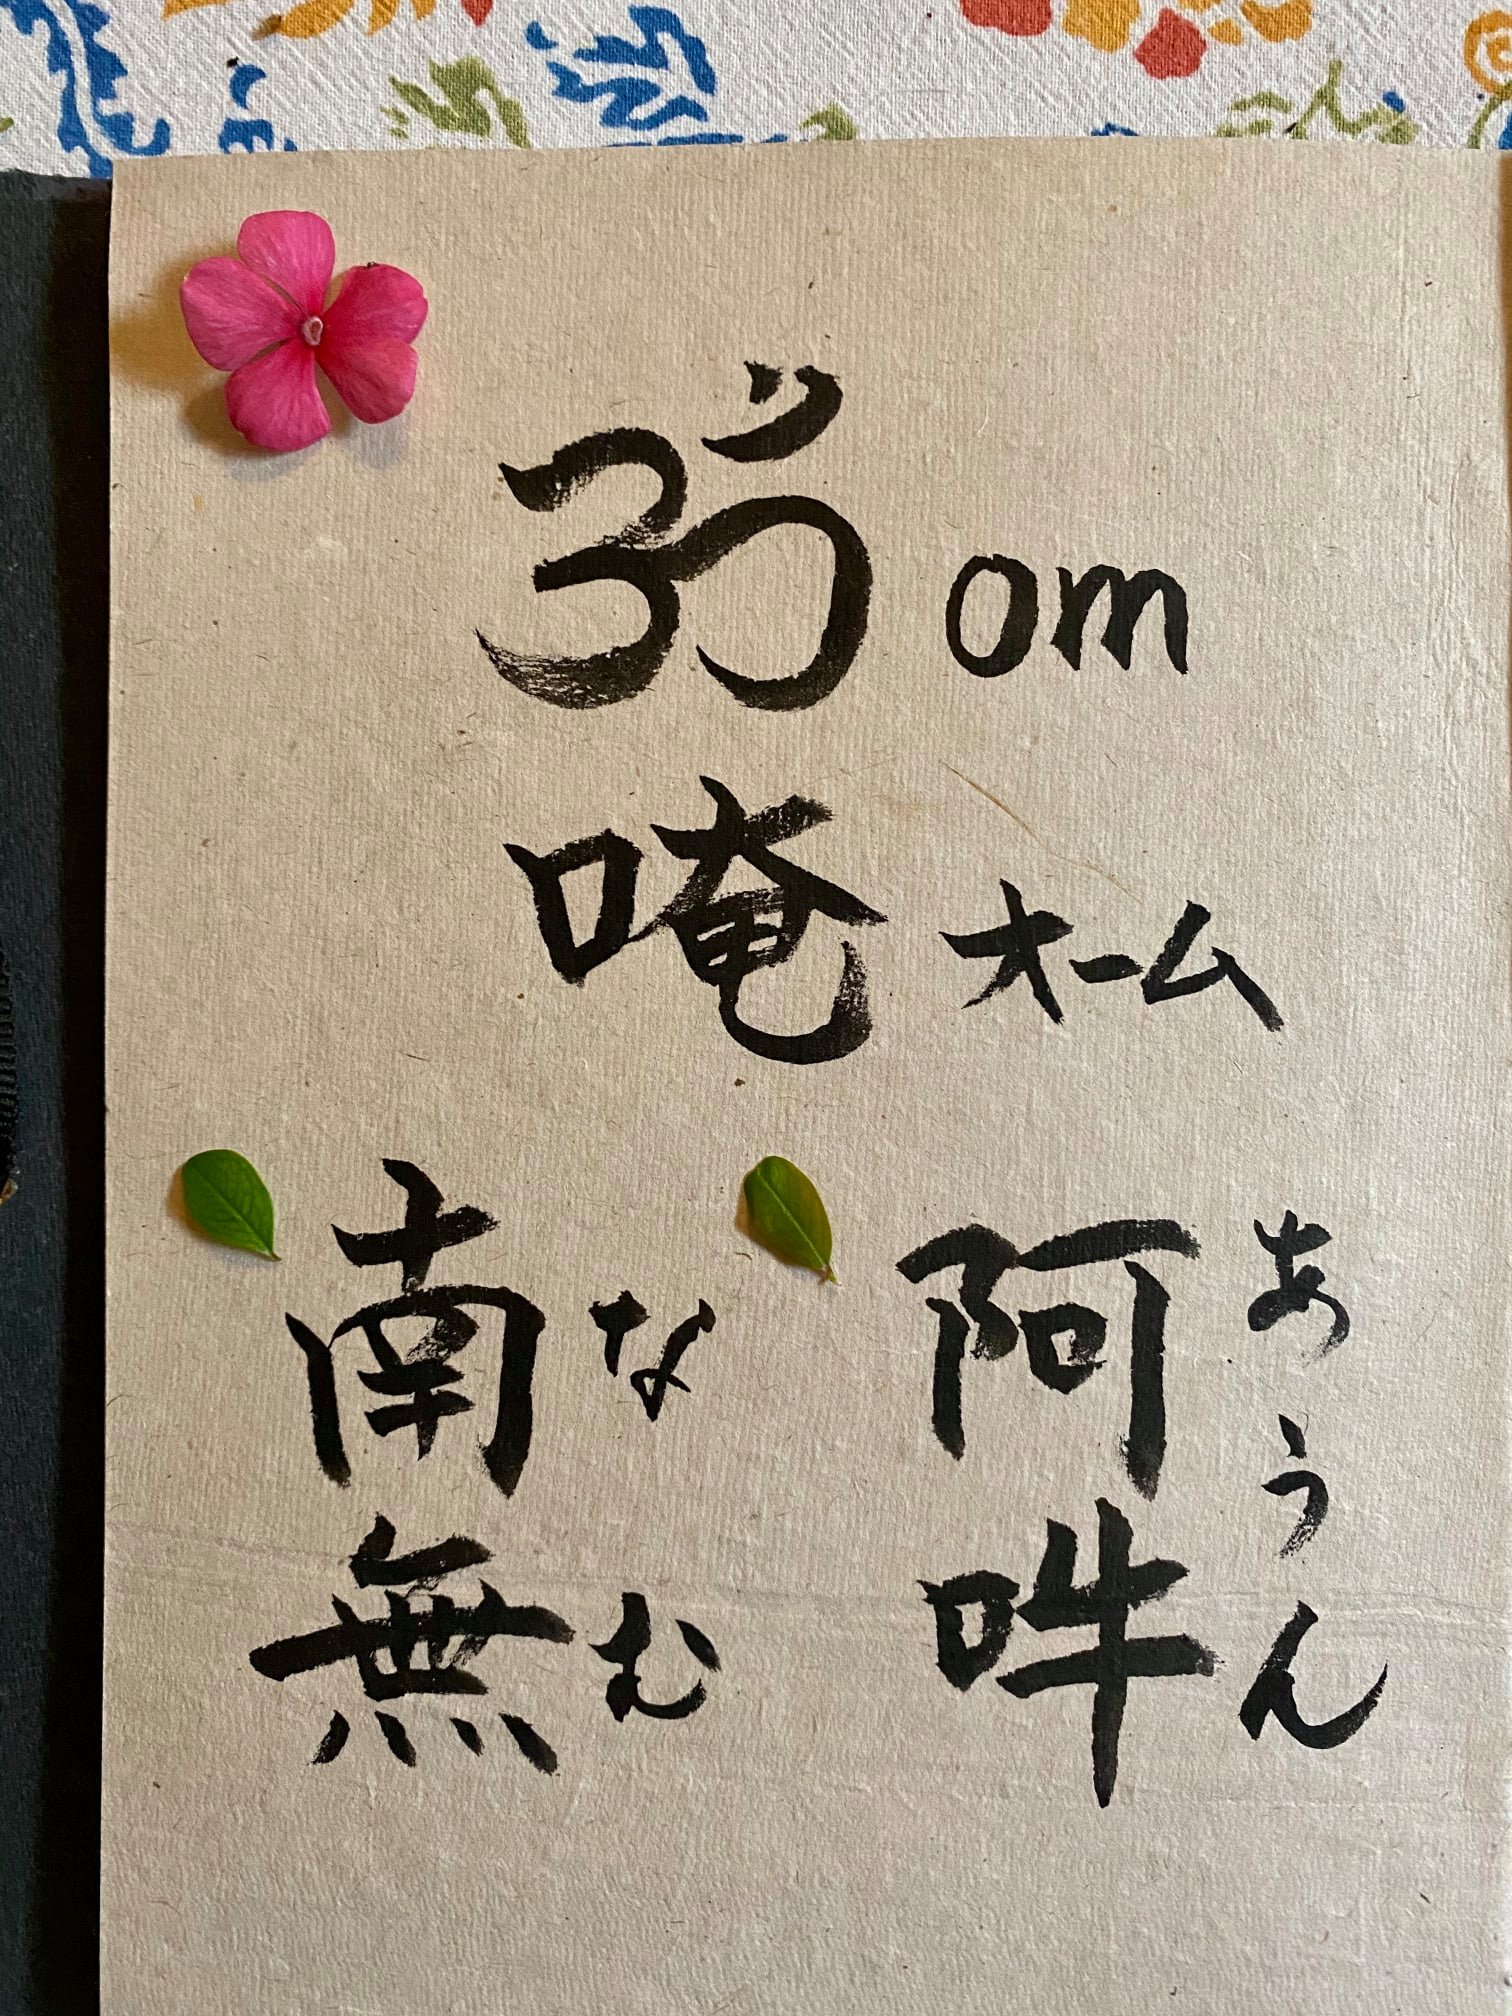 ॐ om
唵 オーム
阿吽 あうん
南無 なむ